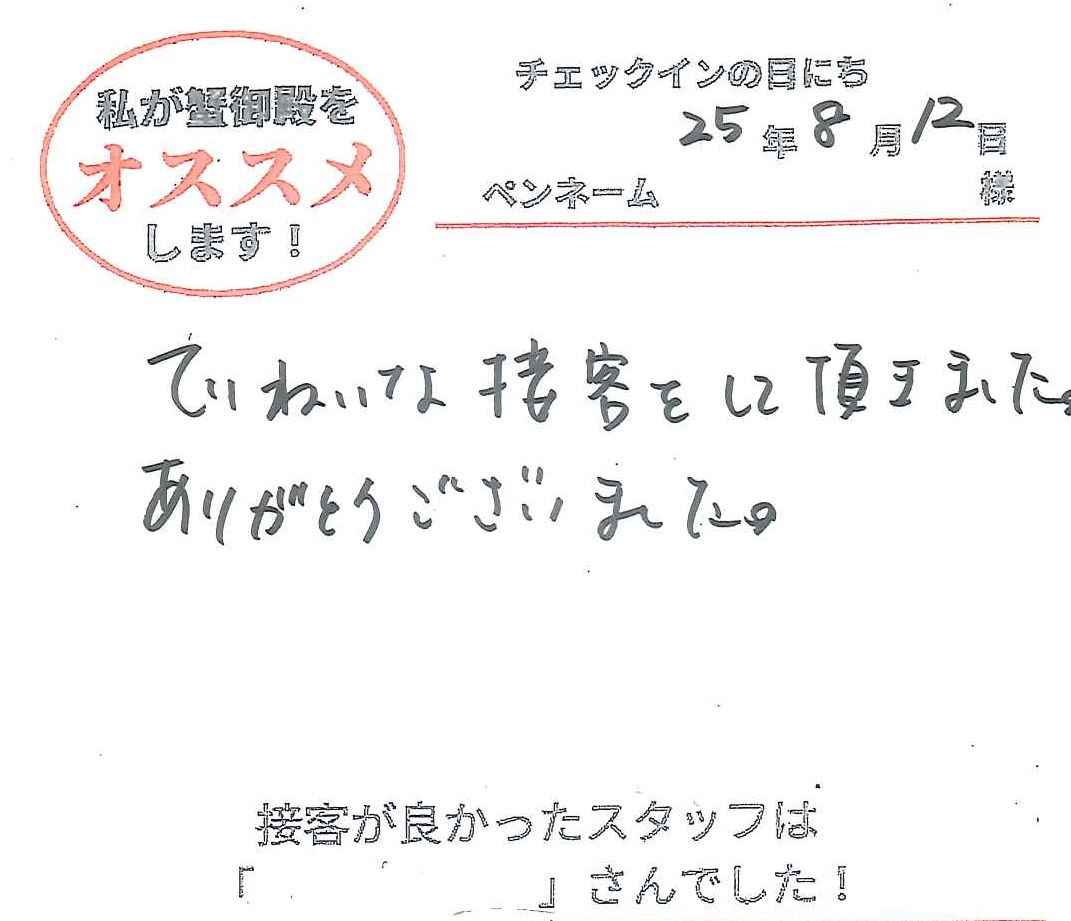 私が蟹御殿を
オススメ
します！
チェックインの日にち
25年8月12日
ペンネーム 様
ていねいな接客をして頂きました。
ありがとうございました。
接客が良かったスタッフは
「 」さんでした！